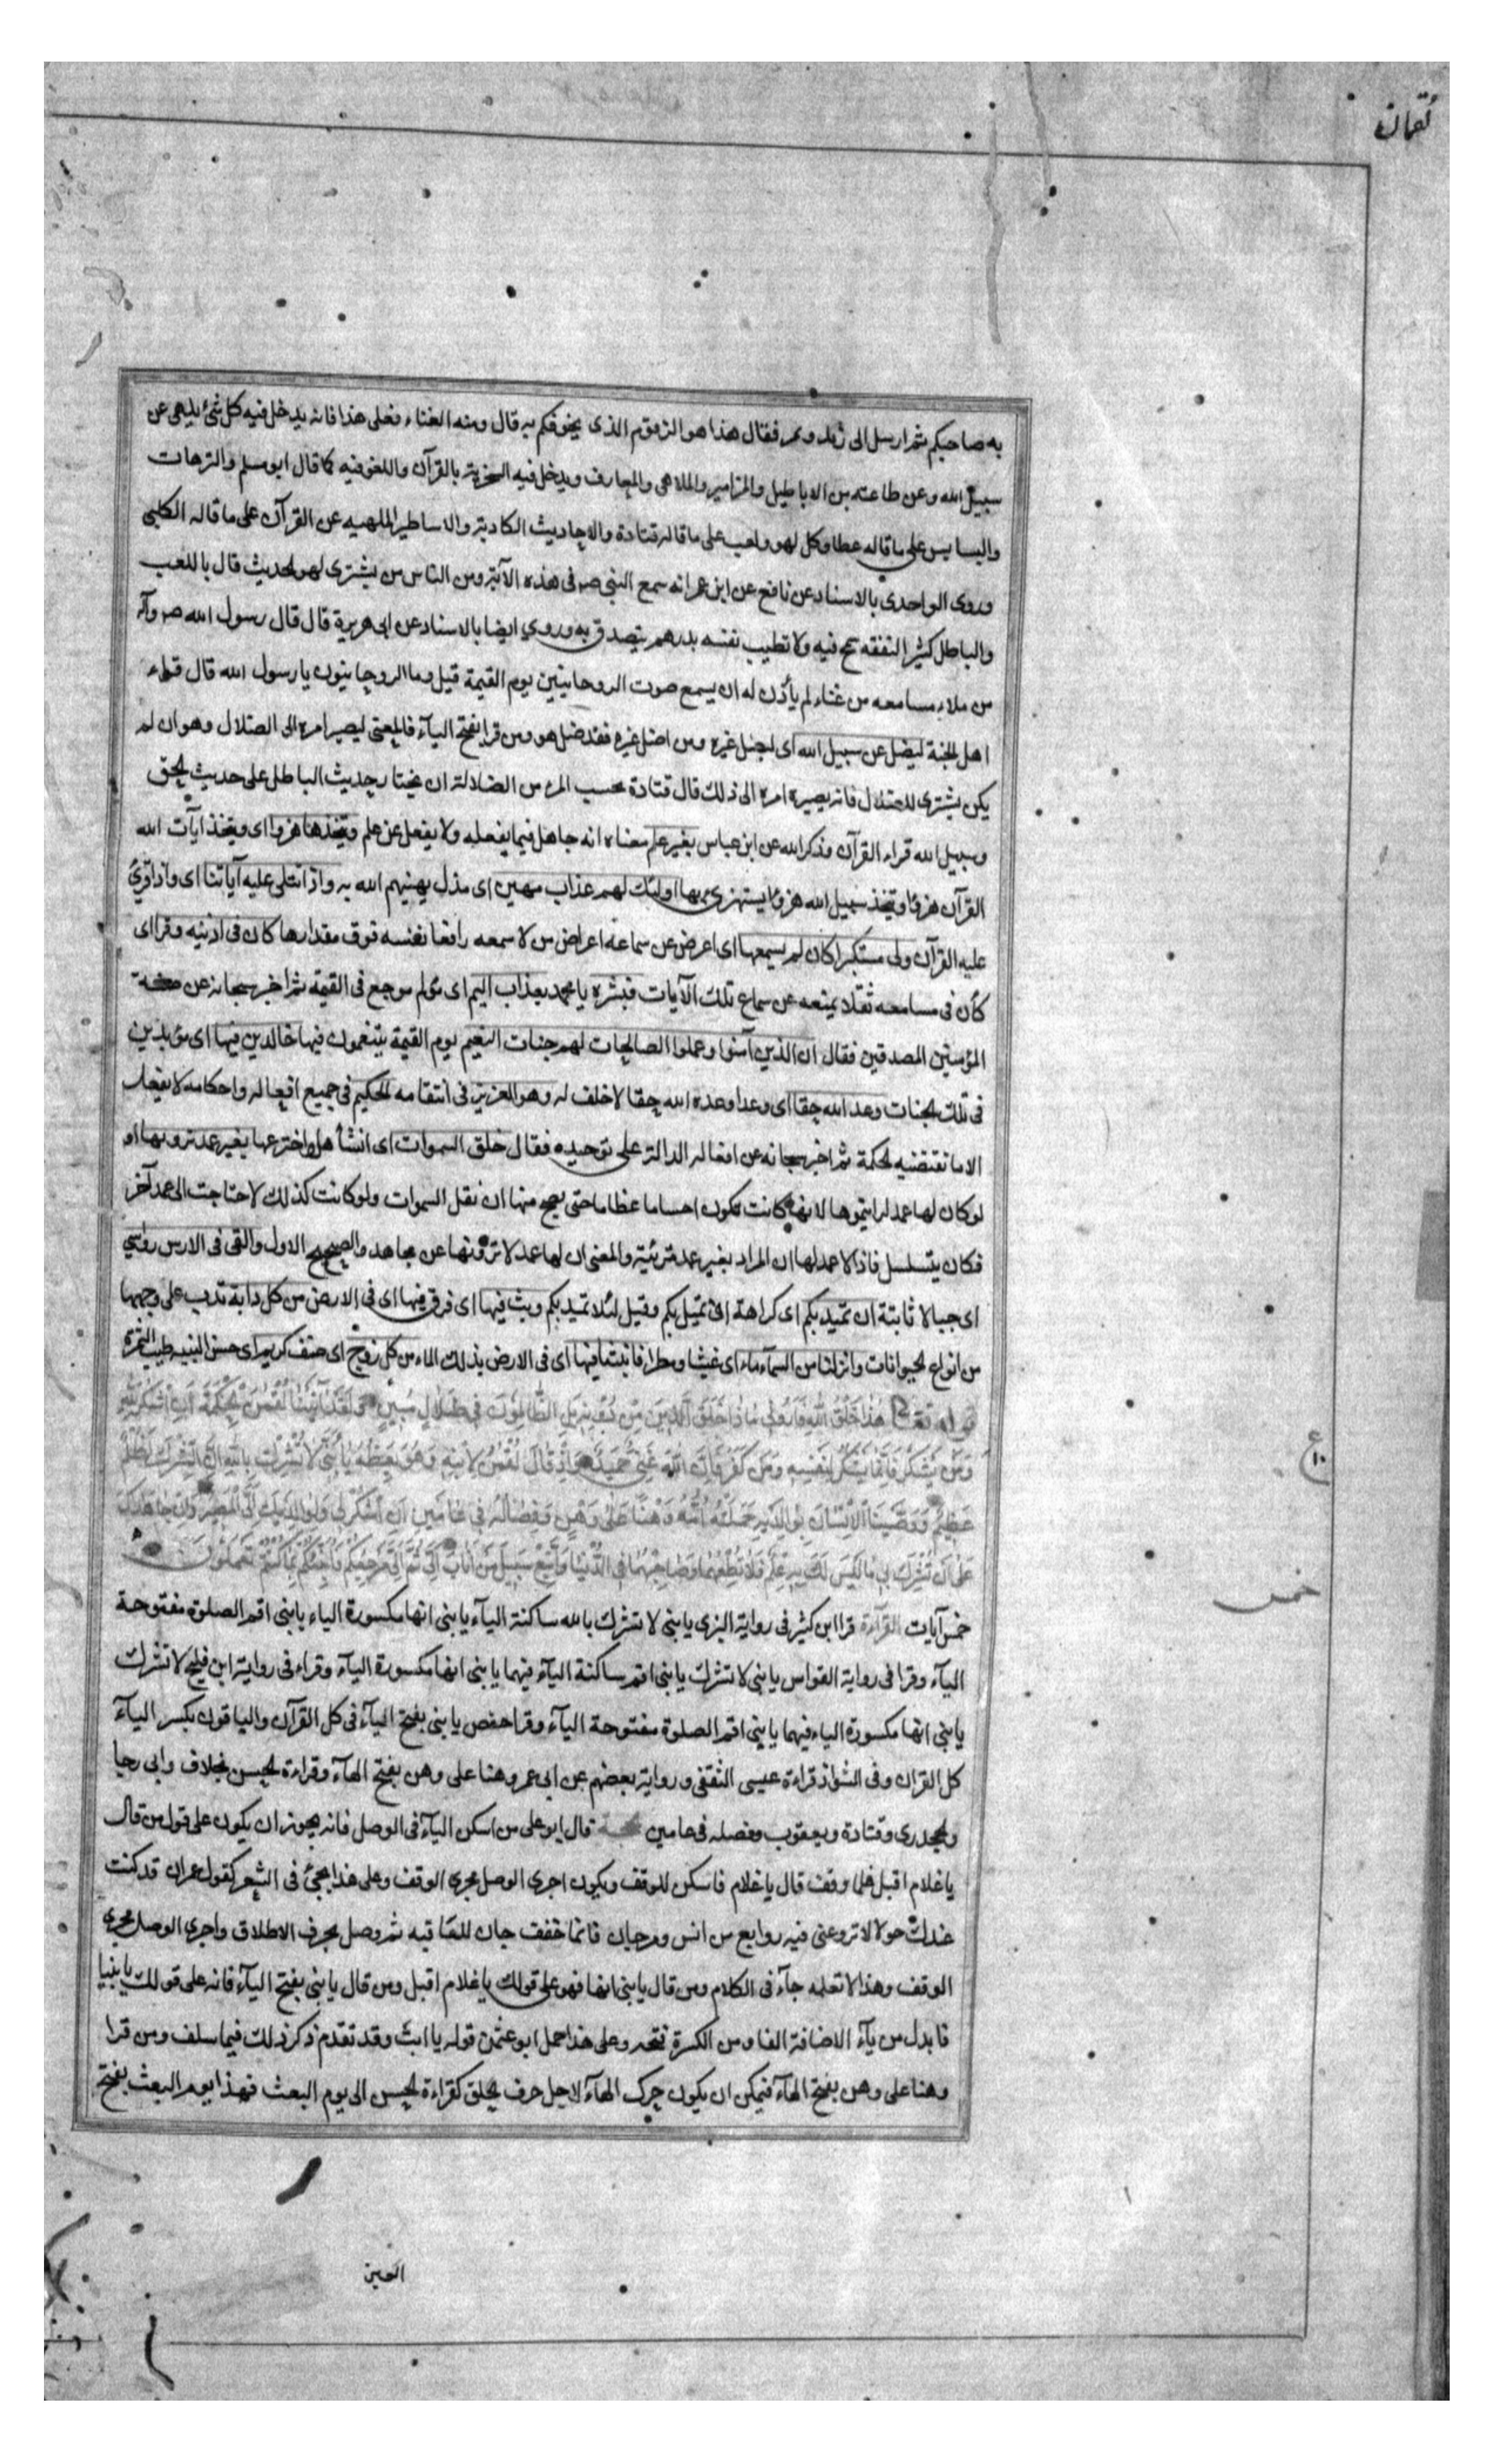 لقمان
به صاحبكم ثم ارسل الى زبد وتمر فقال هذا هو الزقوم الذى يخوفكم به قال ومنه الغناء فعلى هذا فانه يدخل فيه كل شئ يلهى عن
سبيل الله وعن طاعته من الاباطيل والمزامير والملاهى والمعازف ويدخل فيه السخرية بالقرآن واللغو فيه كما قال ابو مسلم والترهات
والبسابس على ما قاله عطا وكل لهو ولعب على ما قاله قتادة والاحاديث الكاذبة والاساطير الملهيه عن القرآن على ما قاله الكلبى
وروى الواحدى بالاسناد عن نافع عن ابن عمر انه سمع النبى صـ فى هذه الآية ومن الناس من يشترى لهو الحديث قال باللعب
والباطل كثير النفقه سمح فيه ولا تطيب نفسه بدرهم يتصدق به وروى ايضا بالاسناد عن ابى هريرة قال قال رسول الله صـ وآله
من ملاء مسامعه من غناء لم يأذن له ان يسمع صوت الروحانيين يوم القيمة قيل وما الروحانيون يا رسول الله قال قراء
اهل الجنة ليضل عن سبيل الله اى ليضل غيره ومن اضل غيره فقد ضل هو ومن قرا بفتح اليآء فالمعنى ليصير امره الى الضلال وهو ان لم
يكن يشترى للضلال فانه يصير امره الى ذلك قال قتادة بحسب المرء من الضلالة ان يختار حديث الباطل على حديث الحق
وسبيل الله قراء القرآن وذكر الله عن ابن عباس بغير علم معناه انه جاهل فيما يفعله ولا يفعل عن علم ويتخذها هزوا اى ويتخذ آيات الله
القرآن هزؤا ويتخذ سبيل الله هزؤا يستهزئ بها اولئك لهم عذاب مهين اى مذل يهينهم الله به واذا تتلى عليه آياتنا اى واذا قرئ
عليه القرآن ولى مستكبرا كان لم يسمعها اى اعرض عن سماعه اعراض من لا سمعه رافعا نفسه فوق مقدارها كان فى اذنيه وقرا اى
كأن فى مسامعه ثقلا يمنعه عن سماع تلك الآيات فبشره يا محمد بعذاب اليم اى مؤلم موجع فى القيمة ثم اخبر سبحانه عن صفة
المؤمنين المصدقين فقال ان الذين آمنوا وعملوا الصالحات لهم جنات النعيم يوم القيمة يتنعمون فيها خالدين فيها اى مؤبدين
فى تلك الجنات وعد الله حقا اى وعدا وعده الله حقا لا خلف له وهو العزيز فى انتقامه الحكيم فى جميع افعاله واحكامه لا يفعل
الا ما تقتضيه الحكمة ثم اخبر سبحانه عن افعاله الدالة على توحيده فقال خلق السموات اى انشأها واخترعها بغير عمد ترونها او
لو كان لها عمد لرايتموها لانها كانت تكون اجساما عظاما حتى يصح منها ان نقل السموات ولو كانت كذلك لاحتاجت الى عمد آخر
فكان يتسلسل فاذا لا عمد لها ان المراد بغير عمد ترئية والمعنى ان لها عمد لا ترونها عن مجاهد والصحيح الاول والقى فى الارض رواسى
اى جبالا ثابتة ان تميد بكم اى كراهة ان تميل بكم وقيل لئلا تميد بكم وبث فيها اى فرق فيها اى فى الارض من كل دابة تدب على وجهها
من انواع الحيوانات وانزلنا من السمآء ماء اى غيثا ومطرا فانبتنا فيها اى فى الارض بذلك الماء من كل زوج اى صنف كريم اى حسن النبتة طيب الثمرة
قوله تعالى هٰذَا خَلْقُ اللّٰهِ فَاَرُونِى مَاذَا خَلَقَ الَّذِينَ مِنْ دُونِهِ بَلِ الظَّالِمُونَ فِى ضَلَالٍ مُبِينٍ وَلَقَدْ آتَيْنَا لُقْمٰنَ الْحِكْمَةَ اَنِ اشْكُرْ لِلّٰهِ
وَمَنْ يَشْكُرْ فَاِنَّمَا يَشْكُرُ لِنَفْسِهِ وَمَنْ كَفَرَ فَاِنَّ اللّٰهَ غَنِىٌّ حَمِيدٌ وَاِذْ قَالَ لُقْمٰنُ لِابْنِهِ وَهُوَ يَعِظُهُ يَا بُنَىَّ لَا تُشْرِكْ بِاللّٰهِ اِنَّ الشِّرْكَ لَظُلْمٌ
عَظِيمٌ وَوَصَّيْنَا الْاِنْسَانَ بِوَالِدَيْهِ حَمَلَتْهُ اُمُّهُ وَهْنًا عَلٰى وَهْنٍ وَفِصَالُهُ فِى عَامَيْنِ اَنِ اشْكُرْ لِى وَلِوَالِدَيْكَ اِلَىَّ الْمَصِيرُ وَاِنْ جَاهَدَاكَ
عَلٰى اَنْ تُشْرِكَ بِى مَا لَيْسَ لَكَ بِهِ عِلْمٌ فَلَا تُطِعْهُمَا وَصَاحِبْهُمَا فِى الدُّنْيَا وَاتَّبِعْ سَبِيلَ مَنْ اَنَابَ اِلَىَّ ثُمَّ اِلَىَّ مَرْجِعُكُمْ فَاُنَبِّئُكُمْ بِمَا كُنْتُمْ تَعْمَلُونَ
خمس آيات القرآءة قرا ابن كثير فى رواية البزى يا بنى لا تشرك بالله ساكنة اليآء يا بنى انها مكسورة الياء يا بنى اقم الصلوة مفتوحة
اليآء وقرا فى رواية القواس يا بنى لا تشرك يا بنى اقم ساكنة اليآء فيهما يا بنى انها مكسورة اليآء وقراء فى رواية ابن فليح لا تشرك
يا بنى انها مكسورة الياء فيهما يا بنى اقم الصلوة مفتوحة اليآء وقرا حفص يا بنى بفتح اليآء فى كل القرآن والباقون بكسر اليآء
كل القران وفى الشواذ قراءة عيسى الثقفى ورواية بعضهم عن ابى عمر وهنا على وهن بفتح الهآء وقراءة الحسن بخلاف وابى رجا
والجحدرى وقتادة ويعقوب وفصله فى عامين قال ابو على من اسكن اليآء فى الوصل فانه يجوز ان يكون على قول من قال
يا غلام اقبل فلما وقف قال يا غلام فاسكن للوقف ويكون اجرى الوصل مجرى الوقف وعلى هذا يجئ فى الشعر كقول عمران قد كنت
عندك حولا لا تروعنى فيه روايع من انس ومرجان فانما خفف جان للقافيه ثم وصل بحرف الاطلاق واجرى الوصل مجرى
الوقف وهذا لا تعلمه جآء فى الكلام ومن قال يا بنى انها فهو على قولك يا غلام اقبل ومن قال يا بنى بفتح اليآء فانه على قولك يا بنيا
فابدل من يآء الاضافة الفا ومن الكسرة فتحه وعلى هذا حمل ابو عثمن قوله يا ابت وقد تقدم ذكر ذلك فيما سلف ومن قرا
وهنا على وهن بفتح الهآء فيمكن ان يكون حرك الهآء لاجل حرف الحلق كقراءة الحسن الى يوم البعث فهذا يوم البعث بفتح
ع
١٠
خمس
العين